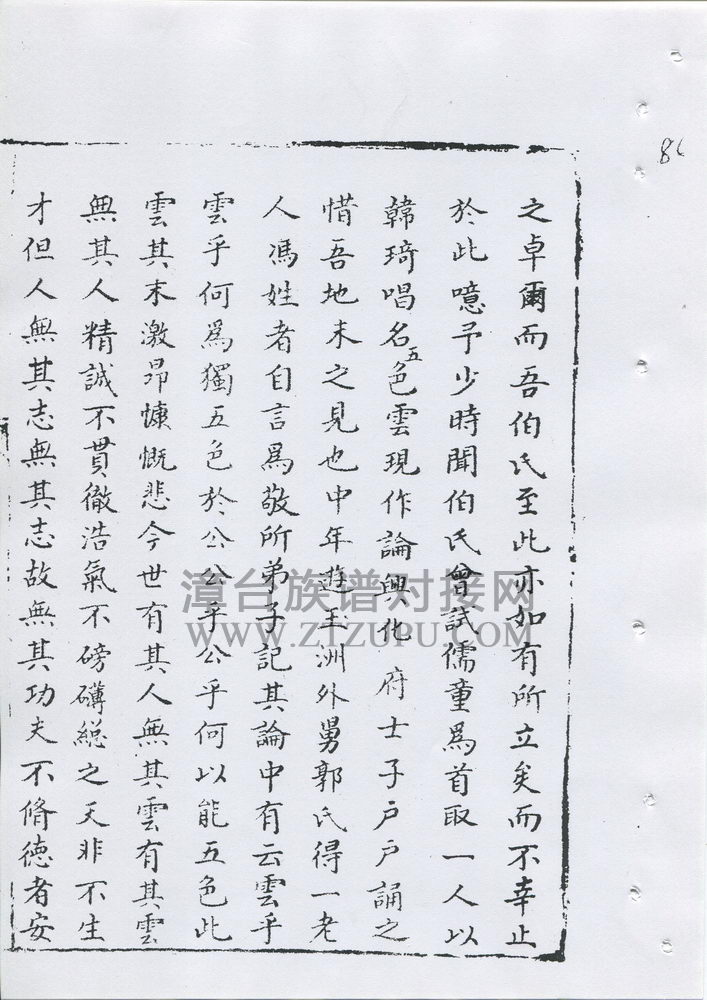 86
之卓爾而吾伯氏至此亦如有所立矣而不幸止
於此噫予少時聞伯氏曾試儒童爲首取一人以
韓琦唱名五色雲現作論興化府士子戶戶誦之
惜吾地未之見也中年遊玉洲外舅郭氏得一老
人馮姓者自言爲敬所弟子記其論中有云雲乎
雲乎何爲獨五色於公公乎公乎何以能五色此
雲其末激昂慷慨悲今世有其人無其雲有其雲
無其人精誠不貫徹浩氣不磅礴緦之天非不生
才但人無其志無其志故無其功夫不脩德者安
漳台族谱对接网
WWW.ZTZUPU.COM